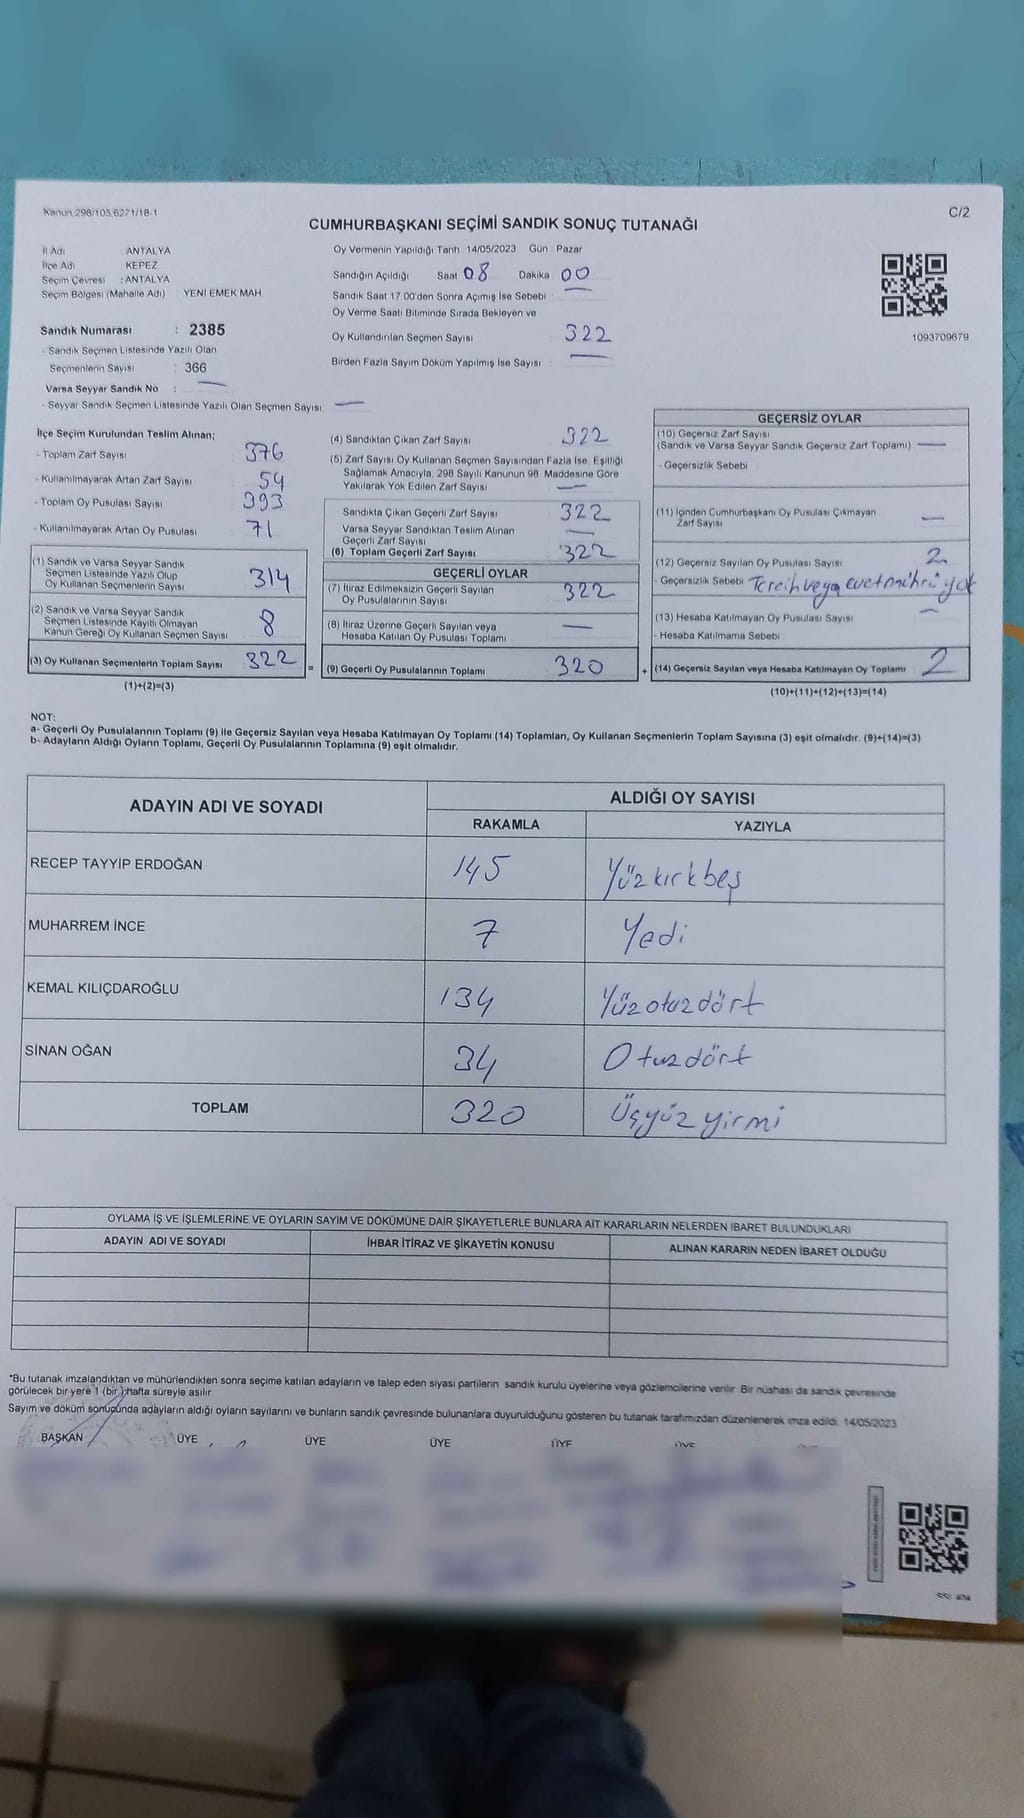 Kanun:298/105,6271/18-1
C/2
CUMHURBAŞKANI SEÇİMİ SANDIK SONUÇ TUTANAĞI
İl Adı : ANTALYA
İlçe Adı : KEPEZ
Seçim Çevresi : ANTALYA
Seçim Bölgesi (Mahalle Adı) : YENİ EMEK MAH
Sandık Numarası : 2385
- Sandık Seçmen Listesinde Yazılı Olan
Seçmenlerin Sayısı : 366
Varsa Seyyar Sandık No : —
- Seyyar Sandık Seçmen Listesinde Yazılı Olan Seçmen Sayısı: —
Oy Vermenin Yapıldığı Tarih : 14/05/2023 Gün : Pazar
Sandığın Açıldığı Saat 08 Dakika 00
Sandık Saat 17.00'den Sonra Açımış İse Sebebi : —
Oy Verme Saati Bitiminde Sırada Bekleyen ve
Oy Kullandırılan Seçmen Sayısı 322
Birden Fazla Sayım Döküm Yapılmış İse Sayısı : —
1093709679
İlçe Seçim Kurulundan Teslim Alınan;
- Toplam Zarf Sayısı 376
- Kullanılmayarak Artan Zarf Sayısı 54
- Toplam Oy Pusulası Sayısı 393
- Kullanılmayarak Artan Oy Pusulası 71
(1) Sandık ve Varsa Seyyar Sandık
Seçmen Listesinde Yazılı Olup
Oy Kullanan Seçmenlerin Sayısı 314
(2) Sandık ve Varsa Seyyar Sandık
Seçmen Listesinde Kayıtlı Olmayan
Kanun Gereği Oy Kullanan Seçmen Sayısı 8
(3) Oy Kullanan Seçmenlerin Toplam Sayısı 322 =
(1)+(2)=(3)
(4) Sandıktan Çıkan Zarf Sayısı 322
(5) Zarf Sayısı Oy Kullanan Seçmen Sayısından Fazla İse, Eşitliği
Sağlamak Amacıyla, 298 Sayılı Kanunun 98. Maddesine Göre
Yakılarak Yok Edilen Zarf Sayısı —
Sandıkta Çıkan Geçerli Zarf Sayısı 322
Varsa Seyyar Sandıktan Teslim Alınan
Geçerli Zarf Sayısı —
(6) Toplam Geçerli Zarf Sayısı 322
GEÇERLİ OYLAR
(7) İtiraz Edilmeksizin Geçerli Sayılan
Oy Pusulalarının Sayısı 322
(8) İtiraz Üzerine Geçerli Sayılan veya
Hesaba Katılan Oy Pusulası Toplamı —
(9) Geçerli Oy Pusulalarının Toplamı 320 +
GEÇERSİZ OYLAR
(10) Geçersiz Zarf Sayısı
(Sandık ve Varsa Seyyar Sandık Geçersiz Zarf Toplamı) —
- Geçersizlik Sebebi
(11) İçinden Cumhurbaşkanı Oy Pusulası Çıkmayan
Zarf Sayısı —
(12) Geçersiz Sayılan Oy Pusulası Sayısı 2
- Geçersizlik Sebebi Tercih veya evet mührü yok
(13) Hesaba Katılmayan Oy Pusulası Sayısı —
- Hesaba Katılmama Sebebi
(14) Geçersiz Sayılan veya Hesaba Katılmayan Oy Toplamı 2
(10)+(11)+(12)+(13)=(14)
NOT:
a- Geçerli Oy Pusulalarının Toplamı (9) ile Geçersiz Sayılan veya Hesaba Katılmayan Oy Toplamı (14) Toplamları, Oy Kullanan Seçmenlerin Toplam Sayısına (3) eşit olmalıdır. (9)+(14)=(3)
b- Adayların Aldığı Oyların Toplamı, Geçerli Oy Pusulalarının Toplamına (9) eşit olmalıdır.
ADAYIN ADI VE SOYADI ALDIĞI OY SAYISI
RAKAMLA YAZIYLA
RECEP TAYYİP ERDOĞAN 145 Yüzkırkbeş
MUHARREM İNCE 7 Yedi
KEMAL KILIÇDAROĞLU 134 Yüzotuzdört
SİNAN OĞAN 34 Otuzdört
TOPLAM 320 Üçyüz yirmi
OYLAMA İŞ VE İŞLEMLERİNE VE OYLARIN SAYIM VE DÖKÜMÜNE DAİR ŞİKAYETLERLE BUNLARA AİT KARARLARIN NELERDEN İBARET BULUNDUKLARI
ADAYIN ADI VE SOYADI İHBAR İTİRAZ VE ŞİKAYETİN KONUSU ALINAN KARARIN NEDEN İBARET OLDUĞU
*Bu tutanak imzalandıktan ve mühürlendikten sonra seçime katılan adayların ve talep eden siyasi partilerin sandık kurulu üyelerine veya gözlemcilerine verilir. Bir nüshası da sandık çevresinde
görülecek bir yere 1 (bir) hafta süreyle asılır.
Sayım ve döküm sonucunda adayların aldığı oyların sayılarını ve bunların sandık çevresinde bulunanlara duyurulduğunu gösteren bu tutanak tarafımızdan düzenlenerek imza edildi. 14/05/2023
BAŞKAN ÜYE ÜYE ÜYE ÜYE ÜYE